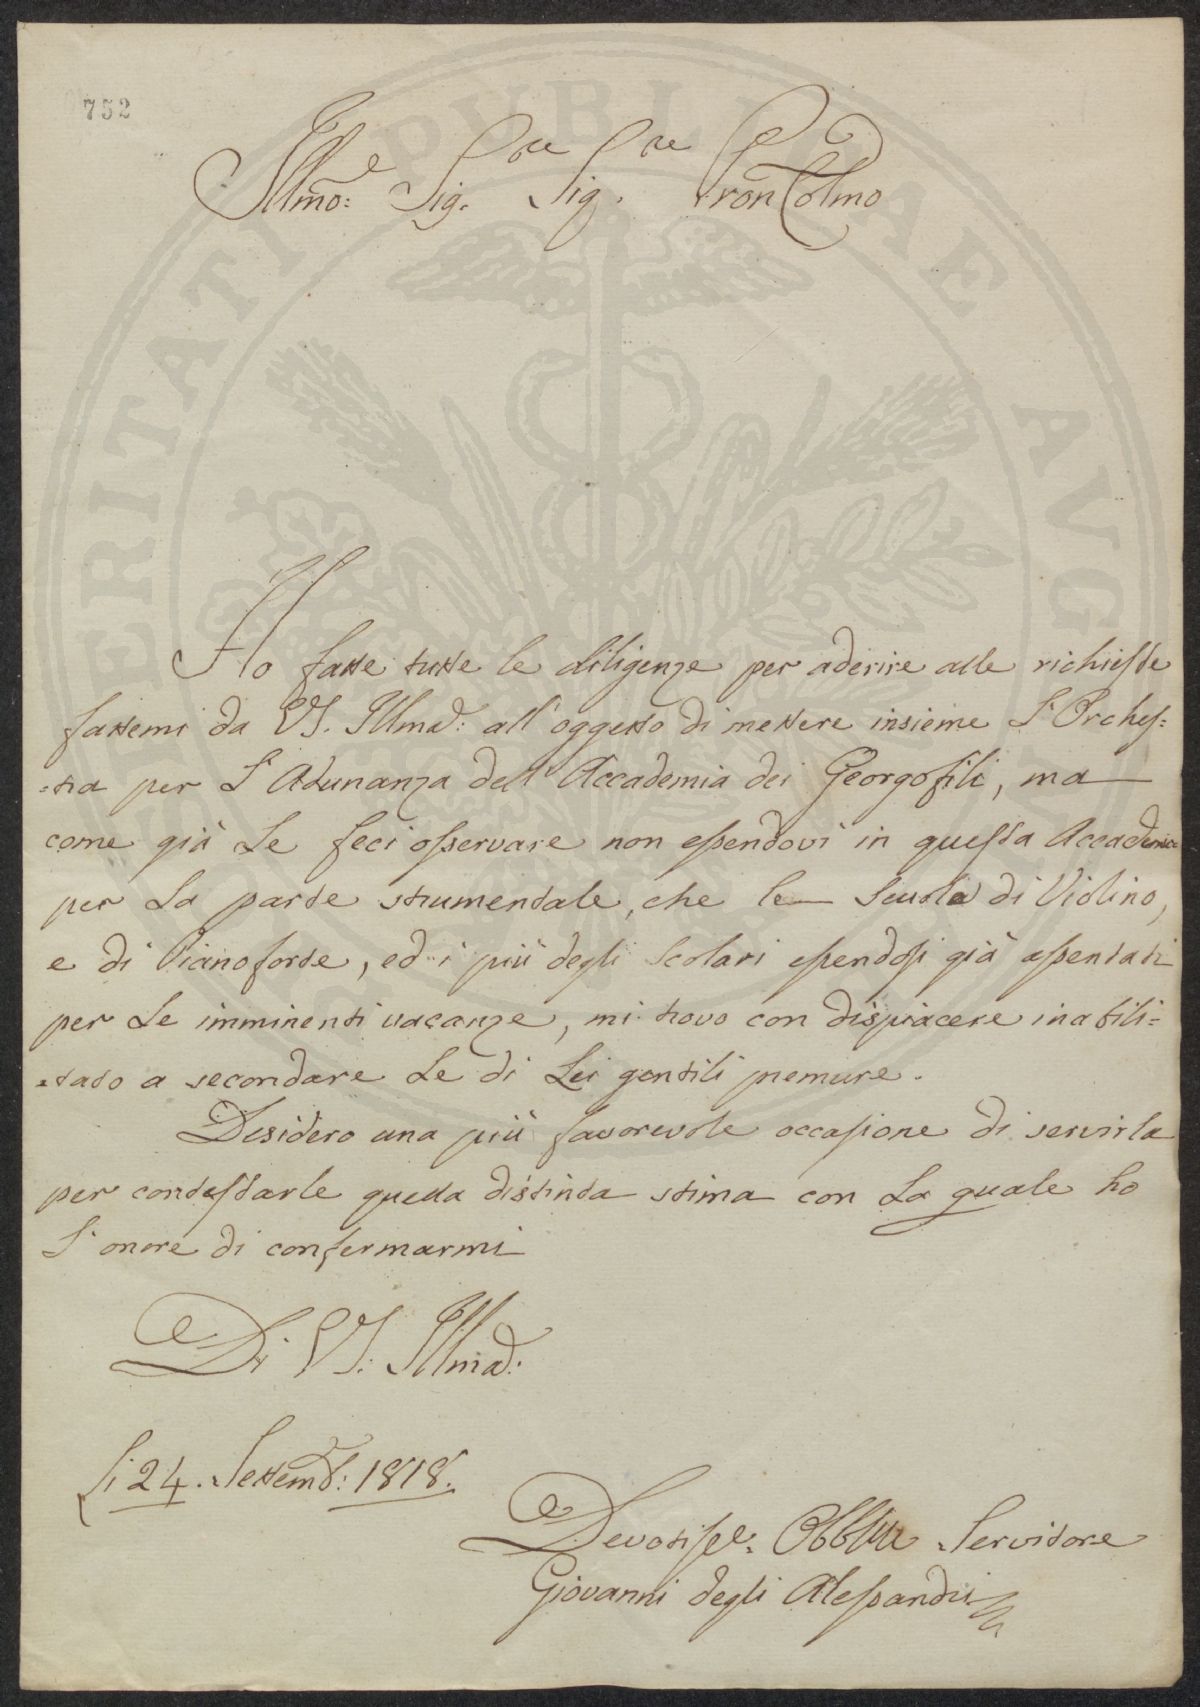 752
Illmo: Sig.re Sig.re Pron Colmo
Ho fatte tutte le diligenze per aderire alle richieste
fattemi da VS. Illma: all'oggetto di mettere insieme l'Orches=
=tra per l'Adunanza dell'Accademia dei Georgofili, ma
come già Le feci osservare non essendovi in questa Accademia
per la parte strumentale, che le Scuole di Violino,
e di Pianoforte, ed i più degli Scolari essendosi già assentati
per le imminenti vacanze, mi trovo con dispiacere inabili=
=tato a secondare le di Lei gentili premure.
Desidero una più favorevole occasione di servirla
per contestarle quella distinta stima con la quale ho
l'onore di confermarmi
Di VS. Illma:
Li 24. Settemb: 1818.
Devotiss: Obblmo Servitore
Giovanni degli Alessandri
PUBLICAE